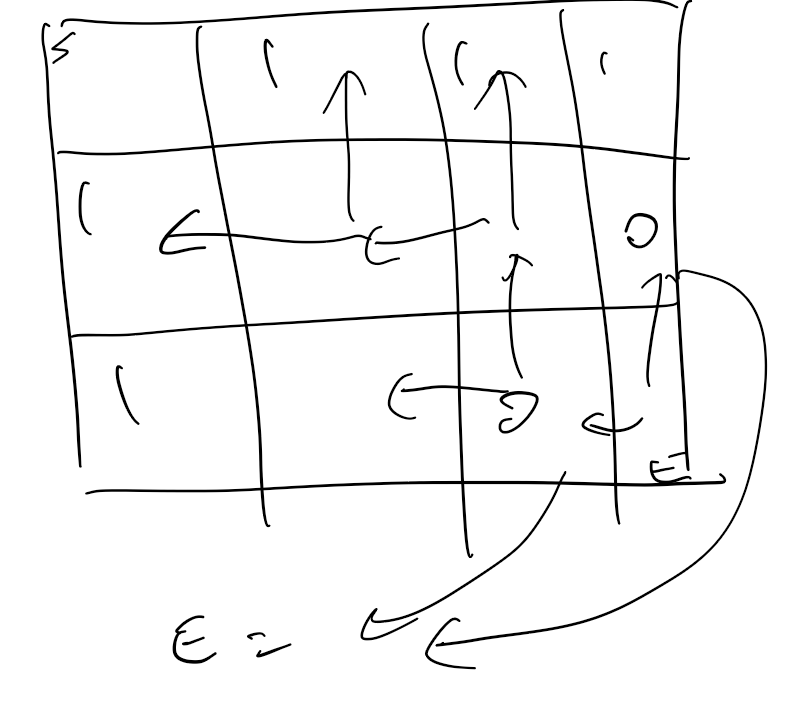 S 1 1 1
1 0
1
E
E =